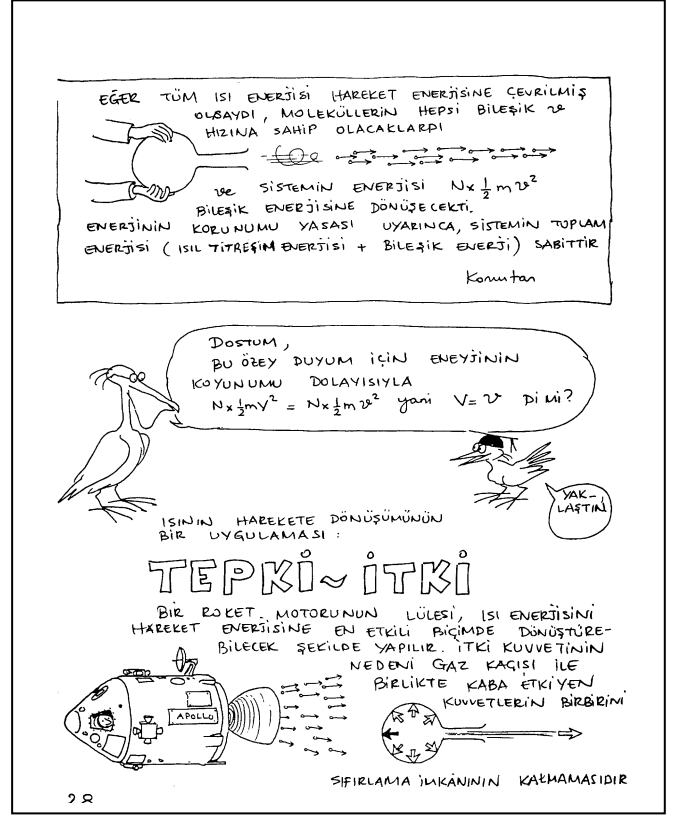 EĞER TÜM ISI ENERJİSİ HAREKET ENERJİSİNE ÇEVRİLMİŞ
OLSAYDI, MOLEKÜLLERİN HEPSİ BİLEŞİK v
HIZINA SAHİP OLACAKLARDI
ve SİSTEMİN ENERJİSİ N x 1/2 m v²
BİLEŞİK ENERJİSİNE DÖNÜŞECEKTİ.
ENERJİNİN KORUNUMU YASASI UYARINCA, SİSTEMİN TOPLAM
ENERJİSİ (ISIL TİTREŞİM ENERJİSİ + BİLEŞİK ENERJİ) SABİTTİR
Komutan
DOSTUM,
BU ÖZEY DUYUM İÇİN ENEYJİNİN
KOYUNUMU DOLAYISIYLA
N x 1/2 mV² = N x 1/2 m v² yani V = v Dİ Mİ?
YAK-
LAŞTIN
ISININ HAREKETE DÖNÜŞÜMÜNÜN
BİR UYGULAMASI :
TEPKİ~İTKİ
BİR ROKET MOTORUNUN LÜLESİ, ISI ENERJİSİNİ
HAREKET ENERJİSİNE EN ETKİLİ BİÇİMDE DÖNÜŞTÜRE-
BİLECEK ŞEKİLDE YAPILIR. İTKİ KUVVETİNİN
NEDENİ GAZ KAÇIŞI İLE
BİRLİKTE KABA ETKİYEN
KUVVETLERİN BİRBİRİNİ
APOLLO
SIFIRLAMA İMKÂNININ KALMAMASIDIR
28